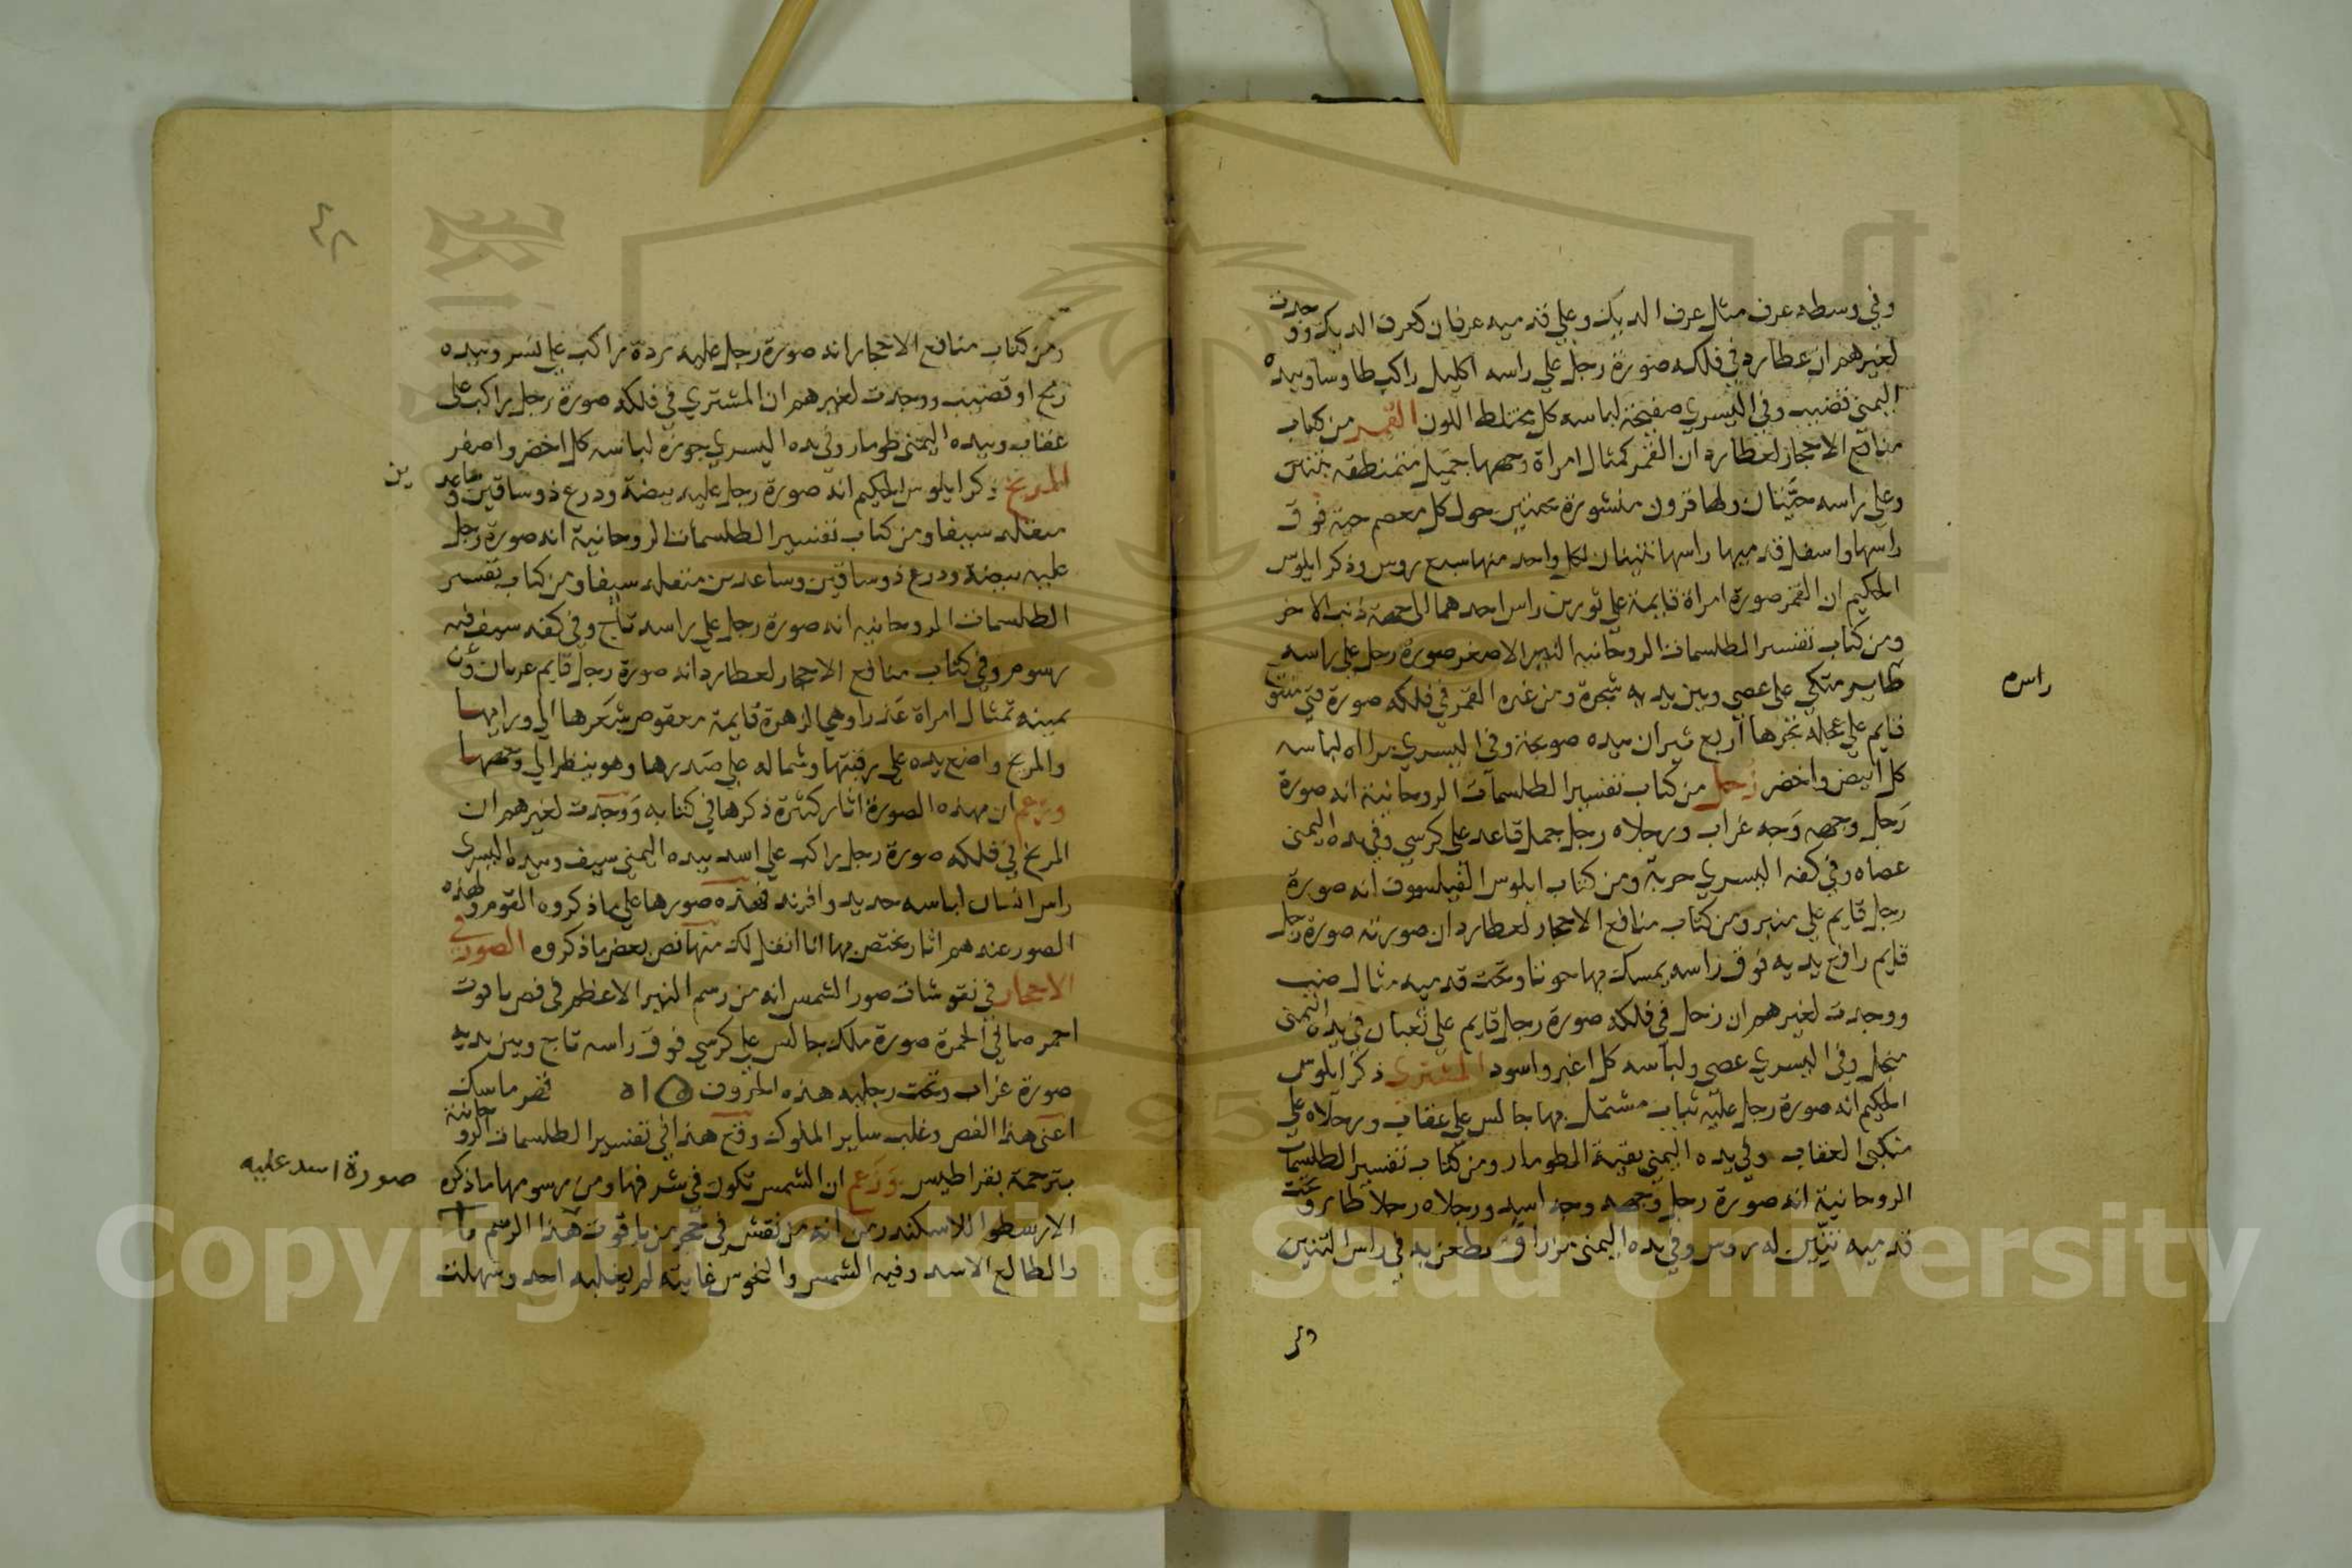 وفي وسطه عرف مثل عرف الديك وعلي قدميه عرفان كعرف الديك ووجدت
لغيرهم ان عطارد في فلكه صورة رجل علي راسه اكليل راكب طاوسا وبيده
اليمنى قضيب وفي اليسري صفيحة لباسه كل مختلط اللون القمر من كتاب
منافع الاحجار لعطارد ان القمر كمثال امراة وجهها جميل متمنطقه بتنين
وعلي راسه حيتان ولها قرون منشورة بحنتين حول كل معصم حية فوق
راسها واسفل قدميها راسها تنينان لكل واحد منها سبع روس وذكر ابلوس
الحكيم ان القمر صورة امراة قايمة علي ثورين راس احدهما الي جهة ذنب الاخر
ومن كتاب تفسير الطلسمات الروحانيه النير الاصغر صورة رجل علي راسه
راس م
طاير متكي على عصى وبين يديه شجرة ومن غيره القمر في فلكه صورة فتى متتوج
قايم علي عجلة تجرها اربع ثيران بيده صولجة وفي اليسري مراه لباسه
كل ابيض واخضر زحل من كتاب تفسير الطلسمات الروحانية انه صورة
رجل وجهه وجه غراب ورجلاه رجل جمل قاعد على كرسي وفي يده اليمنى
عصاه وفي كفه اليسري حربة ومن كتاب ابلوس الفيلسوف انه صورة
رجل قايم علي منبر ومن كتاب منافع الاحجار لعطارد ان صورته صورة رجل
قايم رافع يديه فوق راسه يمسك بها حوتا وتحت قدميه مثال ضب
ووجدت لغيرهم ان زحل في فلكه صورة رجل قايم علي ثعبان في يده اليمنى
منجل وفي اليسري عصى ولباسه كل اغبر واسود المشتري ذكر ابلوس
الحكيم انه صورة رجل عليه ثياب مشتمل بها جالس علي عقاب ورجلاه علي
منكبي العقاب وفي يده اليمنى بقية الطومار ومن كتاب تفسير الطلسمات
الروحانية انه صورة رجل وجهه وجه اسد ورجلاه رجلا طاير وتحت
قدميه تنين له روس وفي يده اليمنى مزراق يطعن به في راس التنين
٤٢
ومن كتاب منافع الاحجار انه صورة رجل عليه بردة راكب علي نسر وبيده
رمح او قضيب ووجدت لغيرهم ان المشتري في فلكه صورة رجل راكب على
عقاب وبيده اليمنى طومار وفي يده اليسري جوزة لباسه كل اخضر واصفر
المريخ ذكر ابلوس الحكيم انه صورة رجل عليه بيضة ودرع ذو ساقين وساعد
ين
متقلد سيفا ومن كتاب تفسير الطلسمات الروحانية انه صورة رجل
عليه بيضة ودرع ذو ساقين وساعدين متقلد سيفا ومن كتاب تفسير
الطلسمات الروحانيه انه صورة رجل علي راسه تاج وفي كفه سيف فيه
رسوم وفي كتاب منافع الاحجار لعطارد انه صورة رجل قايم عريان وعن
يمينه تمثال امراة عذراوهي الزهرة قايمة معقوص شعرها الي ورايها
والمريخ واضع يده علي رقبتها وشماله علي صدرها وهو ينظر الي وجهها
وزعم ان بهذه الصورة اثار كثيرة ذكرها في كتابه ووجدت لغيرهم ان
المريخ في فلكه صورة رجل راكب علي اسد بيده اليمني سيف وبيده اليسرى
راس انسان لباسه حديد وافرند فهذه صورها علي ما ذكروه القوم ولهذه
الصور عندهم اثار يختص بها انا انقل لك منها نص بعض ما ذكروه الصور في
الاحجار في نقوشات صور الشمس انه من رسم النير الاعظم في فص ياقوت
احمر صافي الحمرة صورة ملك جالس علي كرسي فوق راسه تاج وبين يديه
صورة غراب وتحت رجليه هذه الحروف ۵ ا ه قهر ماسك
اعني هذا الفص وغلب ساير الملوك وقع هذا في تفسير الطلسمات الروحانية
بترجمة بقراطيس وزعم ان الشمس تكون في شرفها ومن رسومها ما ذكره
صورة اسد عليه
الارسطوا للاسكندر من انه من نقش في حجر من ياقوت هذا الرسم
والطالع الاسد وفيه الشمس والنحوس غايبة لم يغلبه احد وسهلت
Copyright © King Saud University
1957